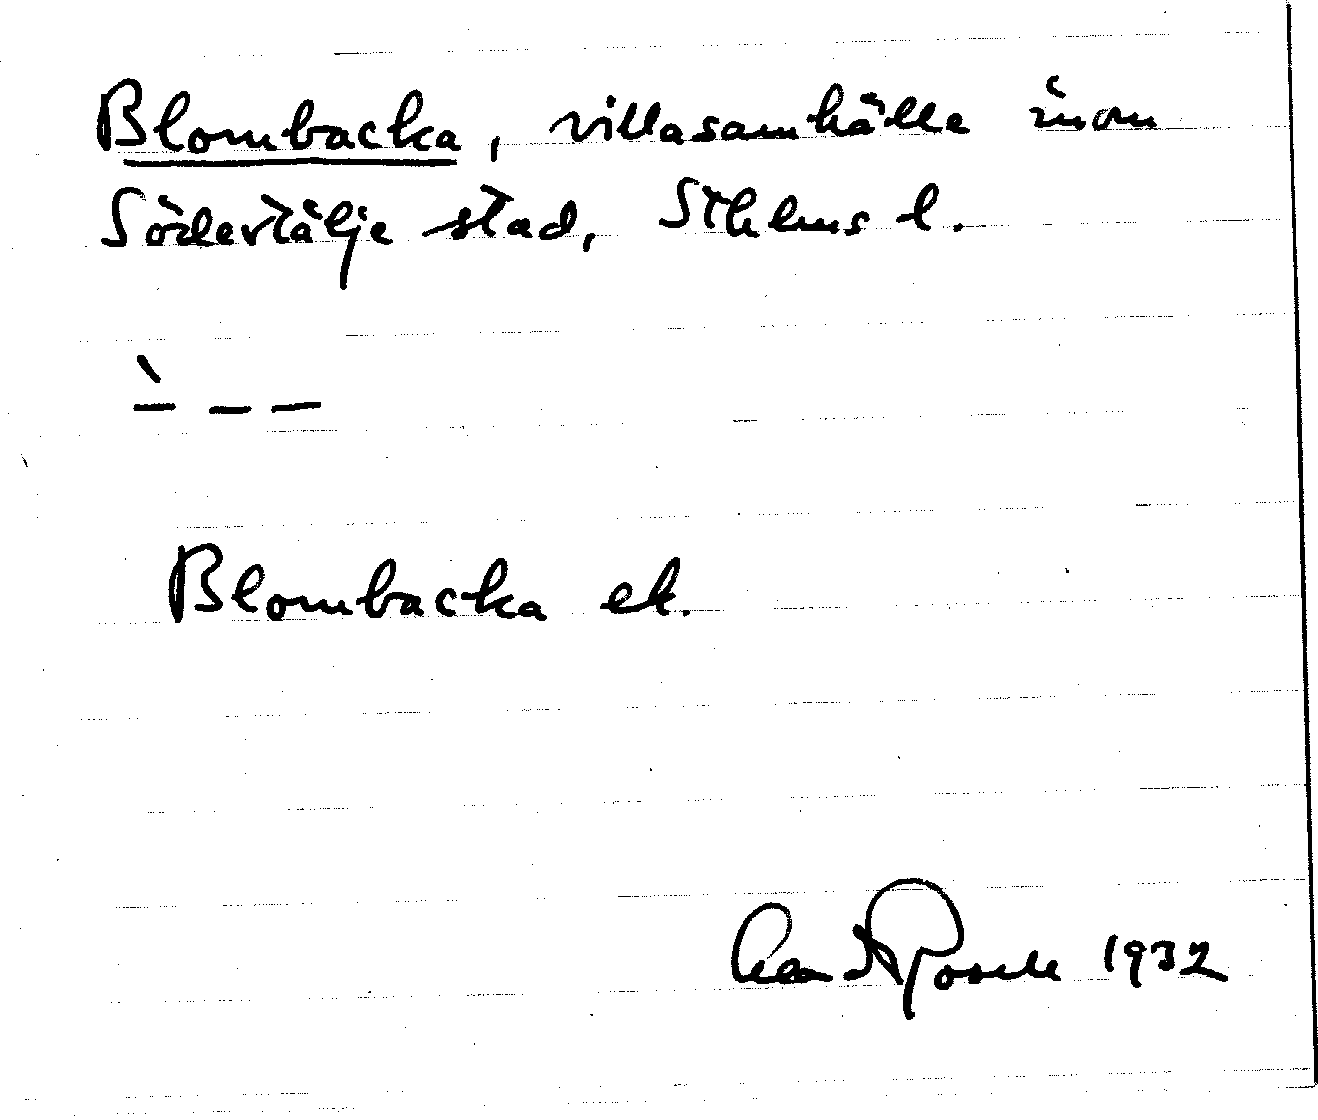 Blombacka, villasamhälle inom
Södertälje stad, Sthlms l.
Blombacka ek.
1932